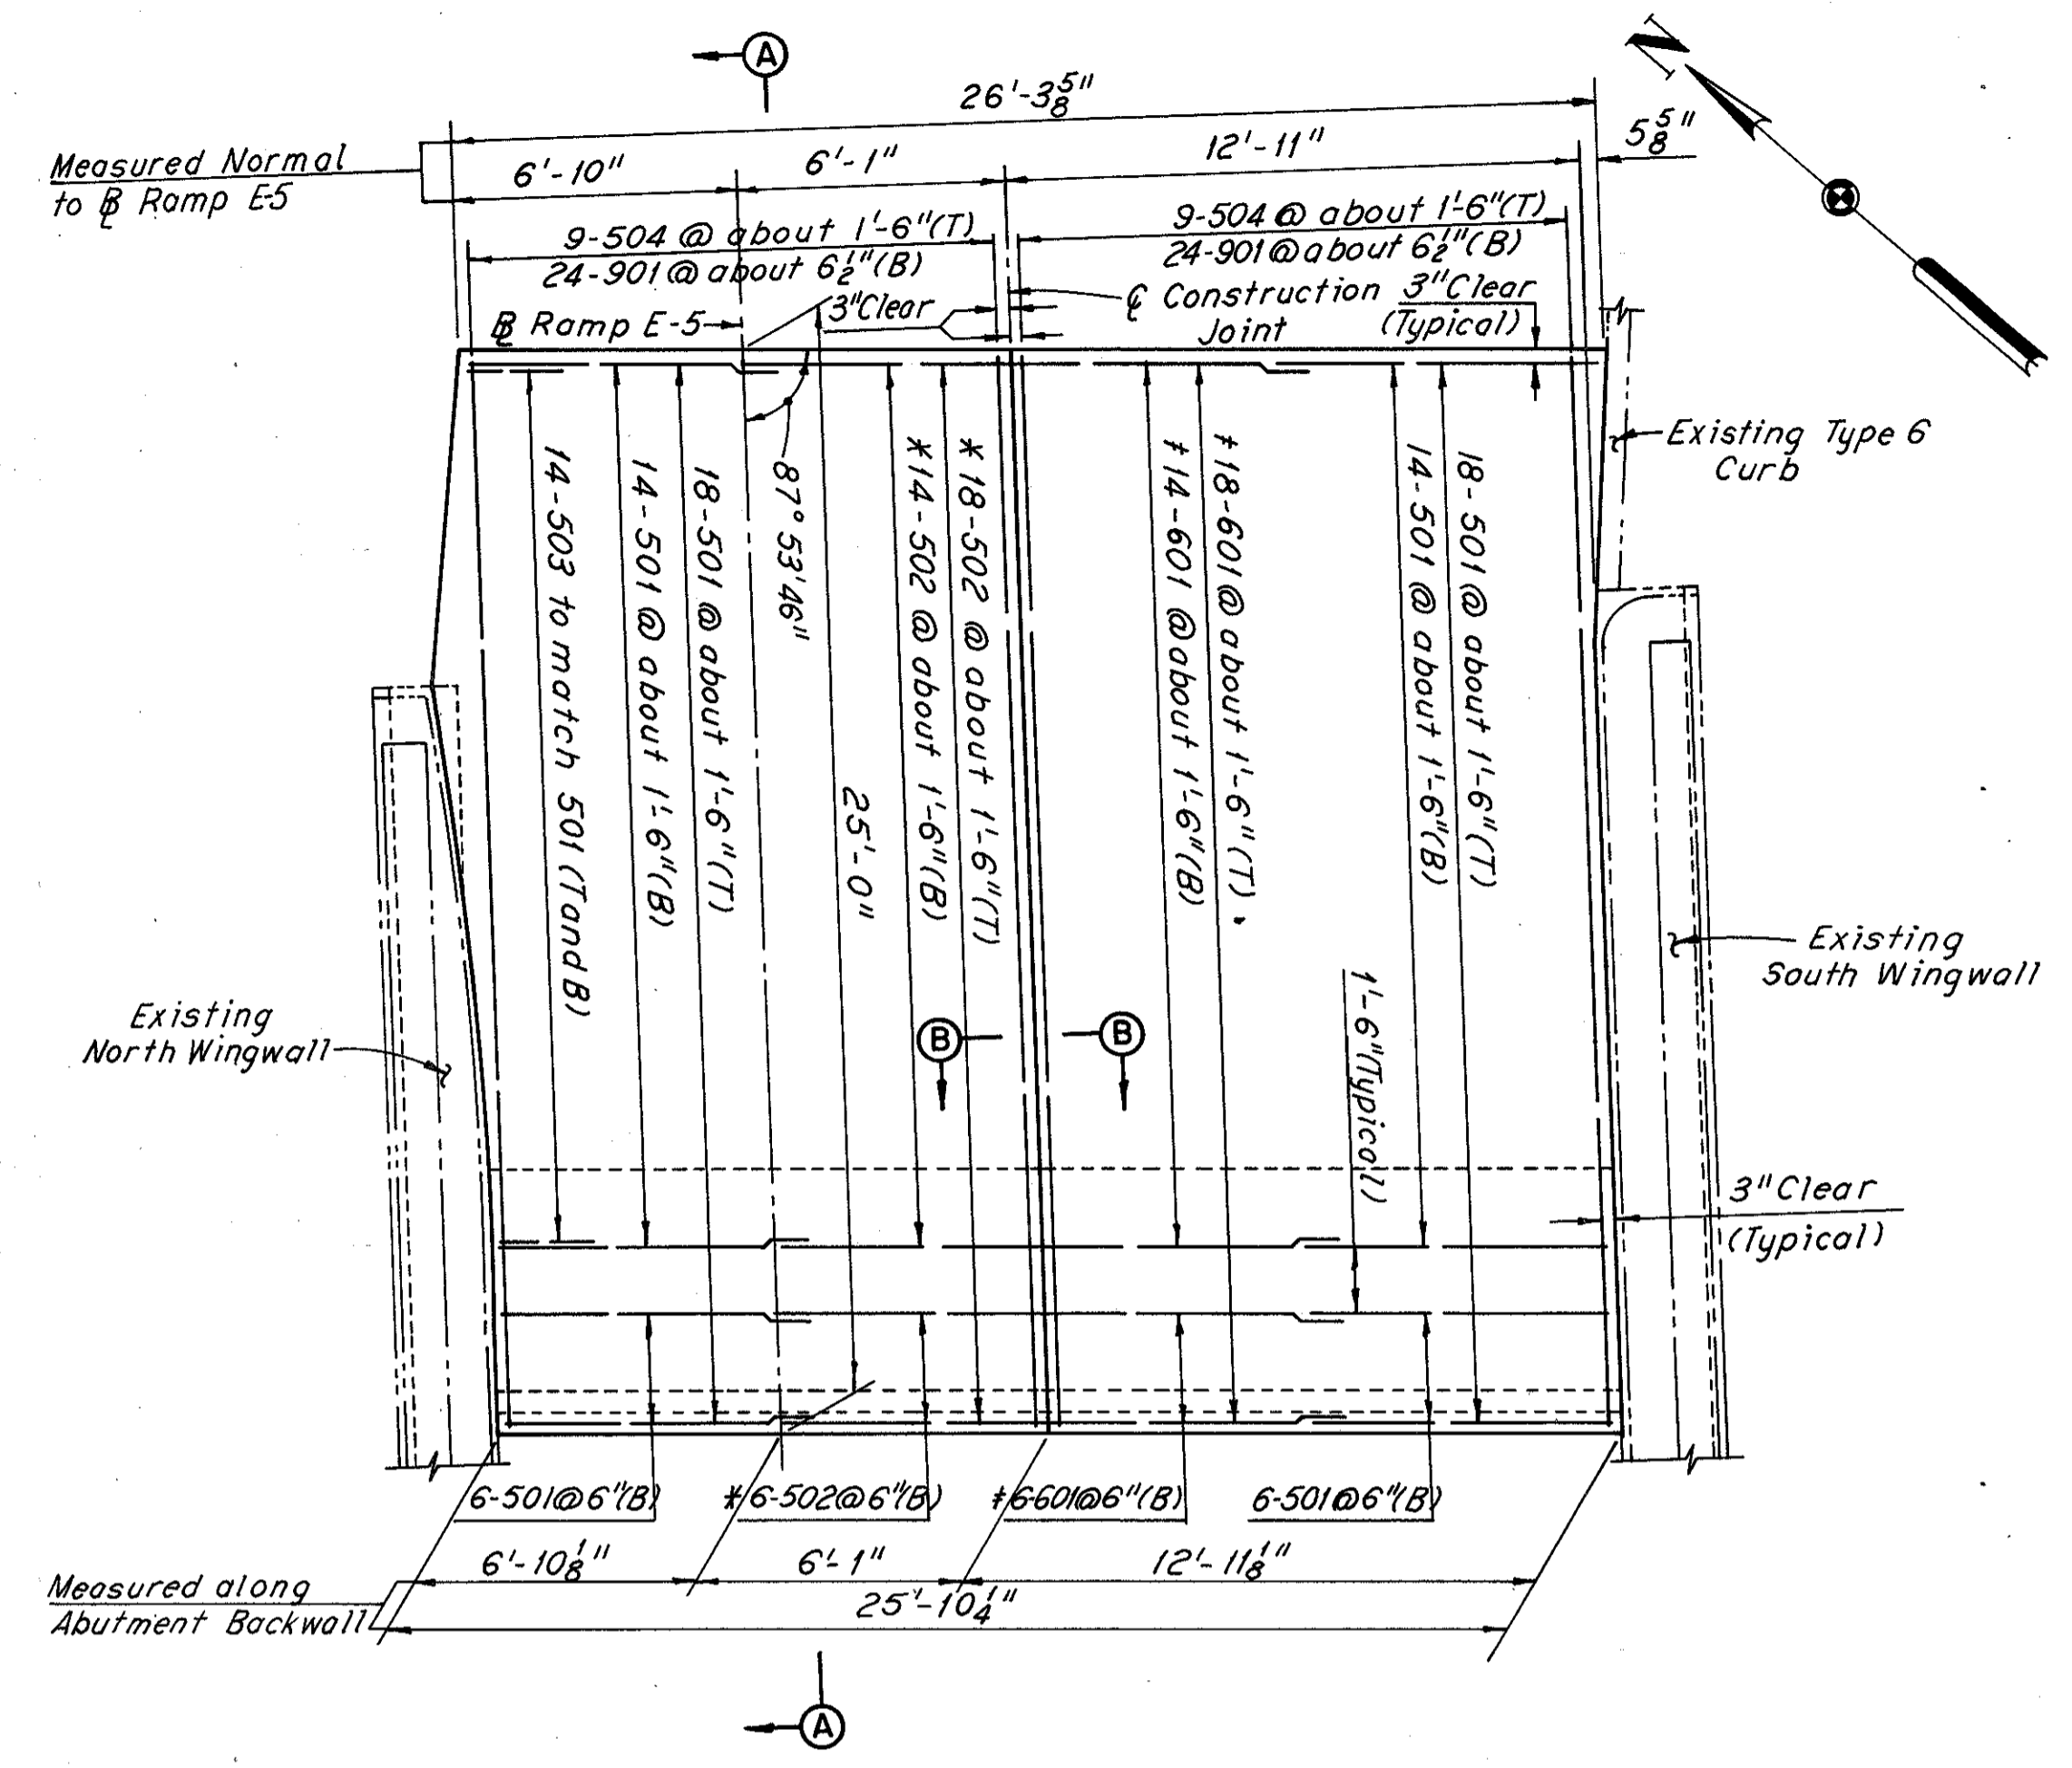 A
N
26'-3 5/8"
5 5/8"
12'-11"
6'-1"
6'-10"
Measured Normal
to ℄ Ramp E-5
9-504 @ about 1'-6"(T)
24-901 @ about 6 1/2"(B)
9-504 @ about 1'-6"(T)
24-901 @ about 6 1/2"(B)
℄ Ramp E-5
3"Clear
℄ Construction
Joint
3"Clear
(Typical)
Existing Type 6
Curb
14-503 to match 501 (T and B)
14-501 @ about 1'-6"(B)
18-501 @ about 1'-6"(T)
87°53'46"
25'-0"
*14-502 @ about 1'-6"(B)
*18-502 @ about 1'-6"(T)
‡14-601 @ about 1'-6"(B)
‡18-601 @ about 1'-6"(T)
14-501 @ about 1'-6"(B)
18-501 @ about 1'-6"(T)
1'-6"(Typical)
Existing
South Wingwall
Existing
North Wingwall
B
B
3"Clear
(Typical)
6-501@6"(B)
*6-502@6"(B)
‡6-601@6"(B)
6-501@6"(B)
6'-10 1/8"
6'-1"
12'-11 1/8"
25'-10 1/4"
Measured along
Abutment Backwall
A